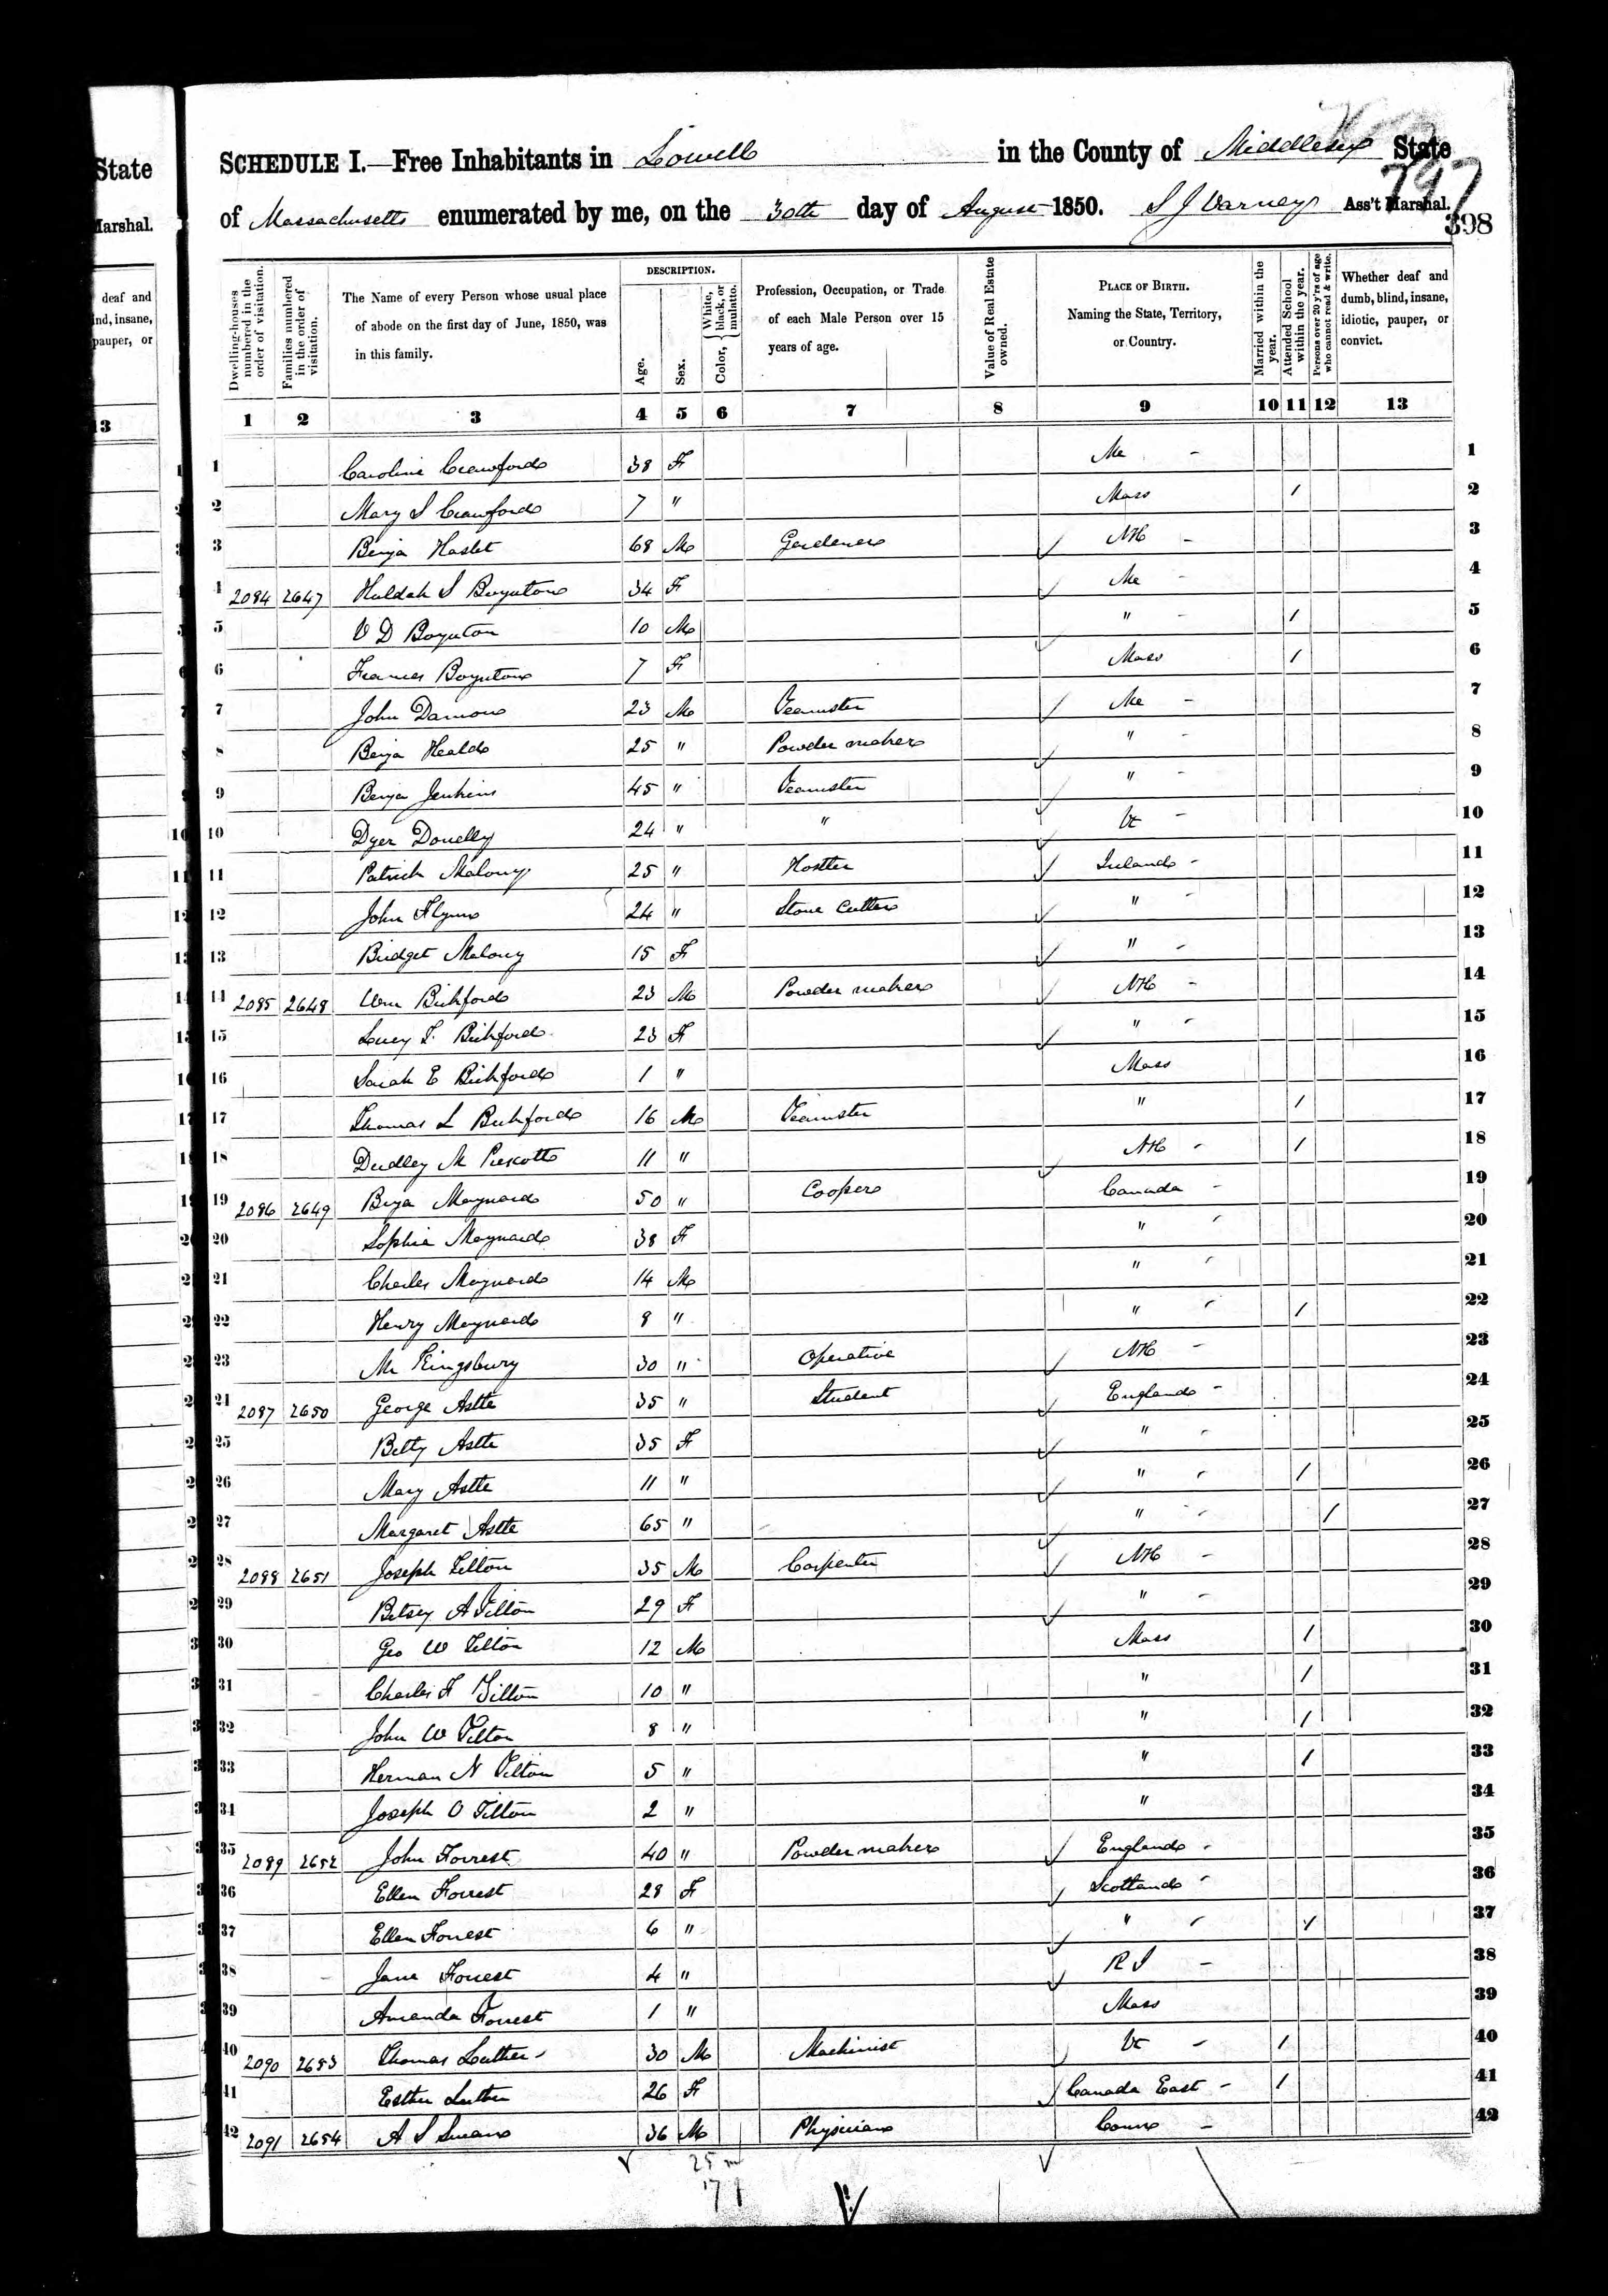 State
Marshal.
deaf and
ind, insane,
pauper, or
13
797
398
SCHEDULE I.—Free Inhabitants in Lowell in the County of Middlesex State
of Massachusetts enumerated by me, on the 30th day of August 1850. S J Varney Ass't Marshal.
Dwelling-houses numbered in the order of visitation.
Families numbered in the order of visitation.
The Name of every Person whose usual place of abode on the first day of June, 1850, was in this family.
DESCRIPTION.
Age.
Sex.
Color, { White, black, or mulatto.
Profession, Occupation, or Trade of each Male Person over 15 years of age.
Value of Real Estate owned.
PLACE OF BIRTH. Naming the State, Territory, or Country.
Married within the year.
Attended School within the year.
Persons over 20 y'rs of age who cannot read & write.
Whether deaf and dumb, blind, insane, idiotic, pauper, or convict.
1 2 3 4 5 6 7 8 9 10 11 12 13
1 Caroline Crawford 38 F Me 1
2 Mary S Crawford 7 " Mass / 2
3 Benja Haslet 68 M Gardener NH 3
4 2084 2647 Huldah S Boynton 34 F Me 4
5 V D Boynton 10 M " / 5
6 Frances Boynton 7 F Mass / 6
7 John Damon 23 M Teamster Me 7
8 Benja Heald 25 " Powder maker " 8
9 Benja Jenkins 45 " Teamster " 9
10 Dyer Donelly 24 " " Vt 10
11 Patrick Malony 25 " Hostler Ireland 11
12 John Flynn 24 " Stone Cutter " 12
13 Bridget Malony 15 F " 13
14 2085 2648 Wm Bickford 23 M Powder maker NH 14
15 Lucy F. Bickford 23 F " 15
16 Sarah E Bickford 1 " Mass 16
17 Thomas L Bickford 16 M Teamster " / 17
18 Dudley M Prescott 11 " NH / 18
19 2086 2649 Benja Maynard 50 " Cooper Canada 19
20 Sophia Maynard 38 F " 20
21 Charles Maynard 14 M " 21
22 Henry Maynard 8 " " / 22
23 M Kingsbury 30 " Operative NH 23
24 2087 2650 George Astle 35 " Student England 24
25 Betty Astle 35 F " 25
26 Mary Astle 11 " " / 26
27 Margaret Astle 65 " " / 27
28 2088 2651 Joseph Tilton 35 M Carpenter NH 28
29 Betsey A Tilton 29 F " 29
30 Geo W Tilton 12 M Mass / 30
31 Charles F Tilton 10 " " / 31
32 John W Tilton 8 " " / 32
33 Herman N Tilton 5 " " / 33
34 Joseph O Tilton 2 " " 34
35 2089 2652 John Forrest 40 " Powder maker England 35
36 Ellen Forrest 28 F Scotland 36
37 Ellen Forrest 6 " " / 37
38 Jane Forrest 4 " R I 38
39 Amanda Forrest 1 " Mass 39
40 2090 2653 Thomas Luther 30 M Machinist Vt / 40
41 Esther Luther 26 F Canada East / 41
42 2091 2654 A S Swan 36 M Physician Conn 42
25 m